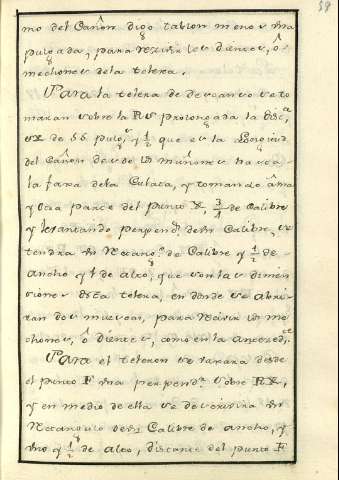 58
mo del Cañon digo tablon menos una
pulgada, para recivir los dientes, ô
mechones dela telera.
Para la telera de descanso se to
maran sobre la RS prolongada la dist.ª
de 55 pulg.s y 1/2 que es la Longitud
del Cañon desde los muñones hasta
la faxa dela Culata, y tomando â una
y otra parte del punto X, 3/4 de Calibre
y levantando perpend.s de un Calibre, se
tendra un Rectang.o de Calibre y 1/2 de
ancho y 1 de alto, que son las dimen
siones desta telera, en donde se abri-
ran dos muescas, para recivir los me
chones, ô dientes, como en la anteced.te
Para el teleron se tirara desde
el punto F una perpend.r sobre
y en medio de ella se descrivira un
Rectangulo de un Calibre de ancho, y
uno y 1/2 de alto, distante del punto F